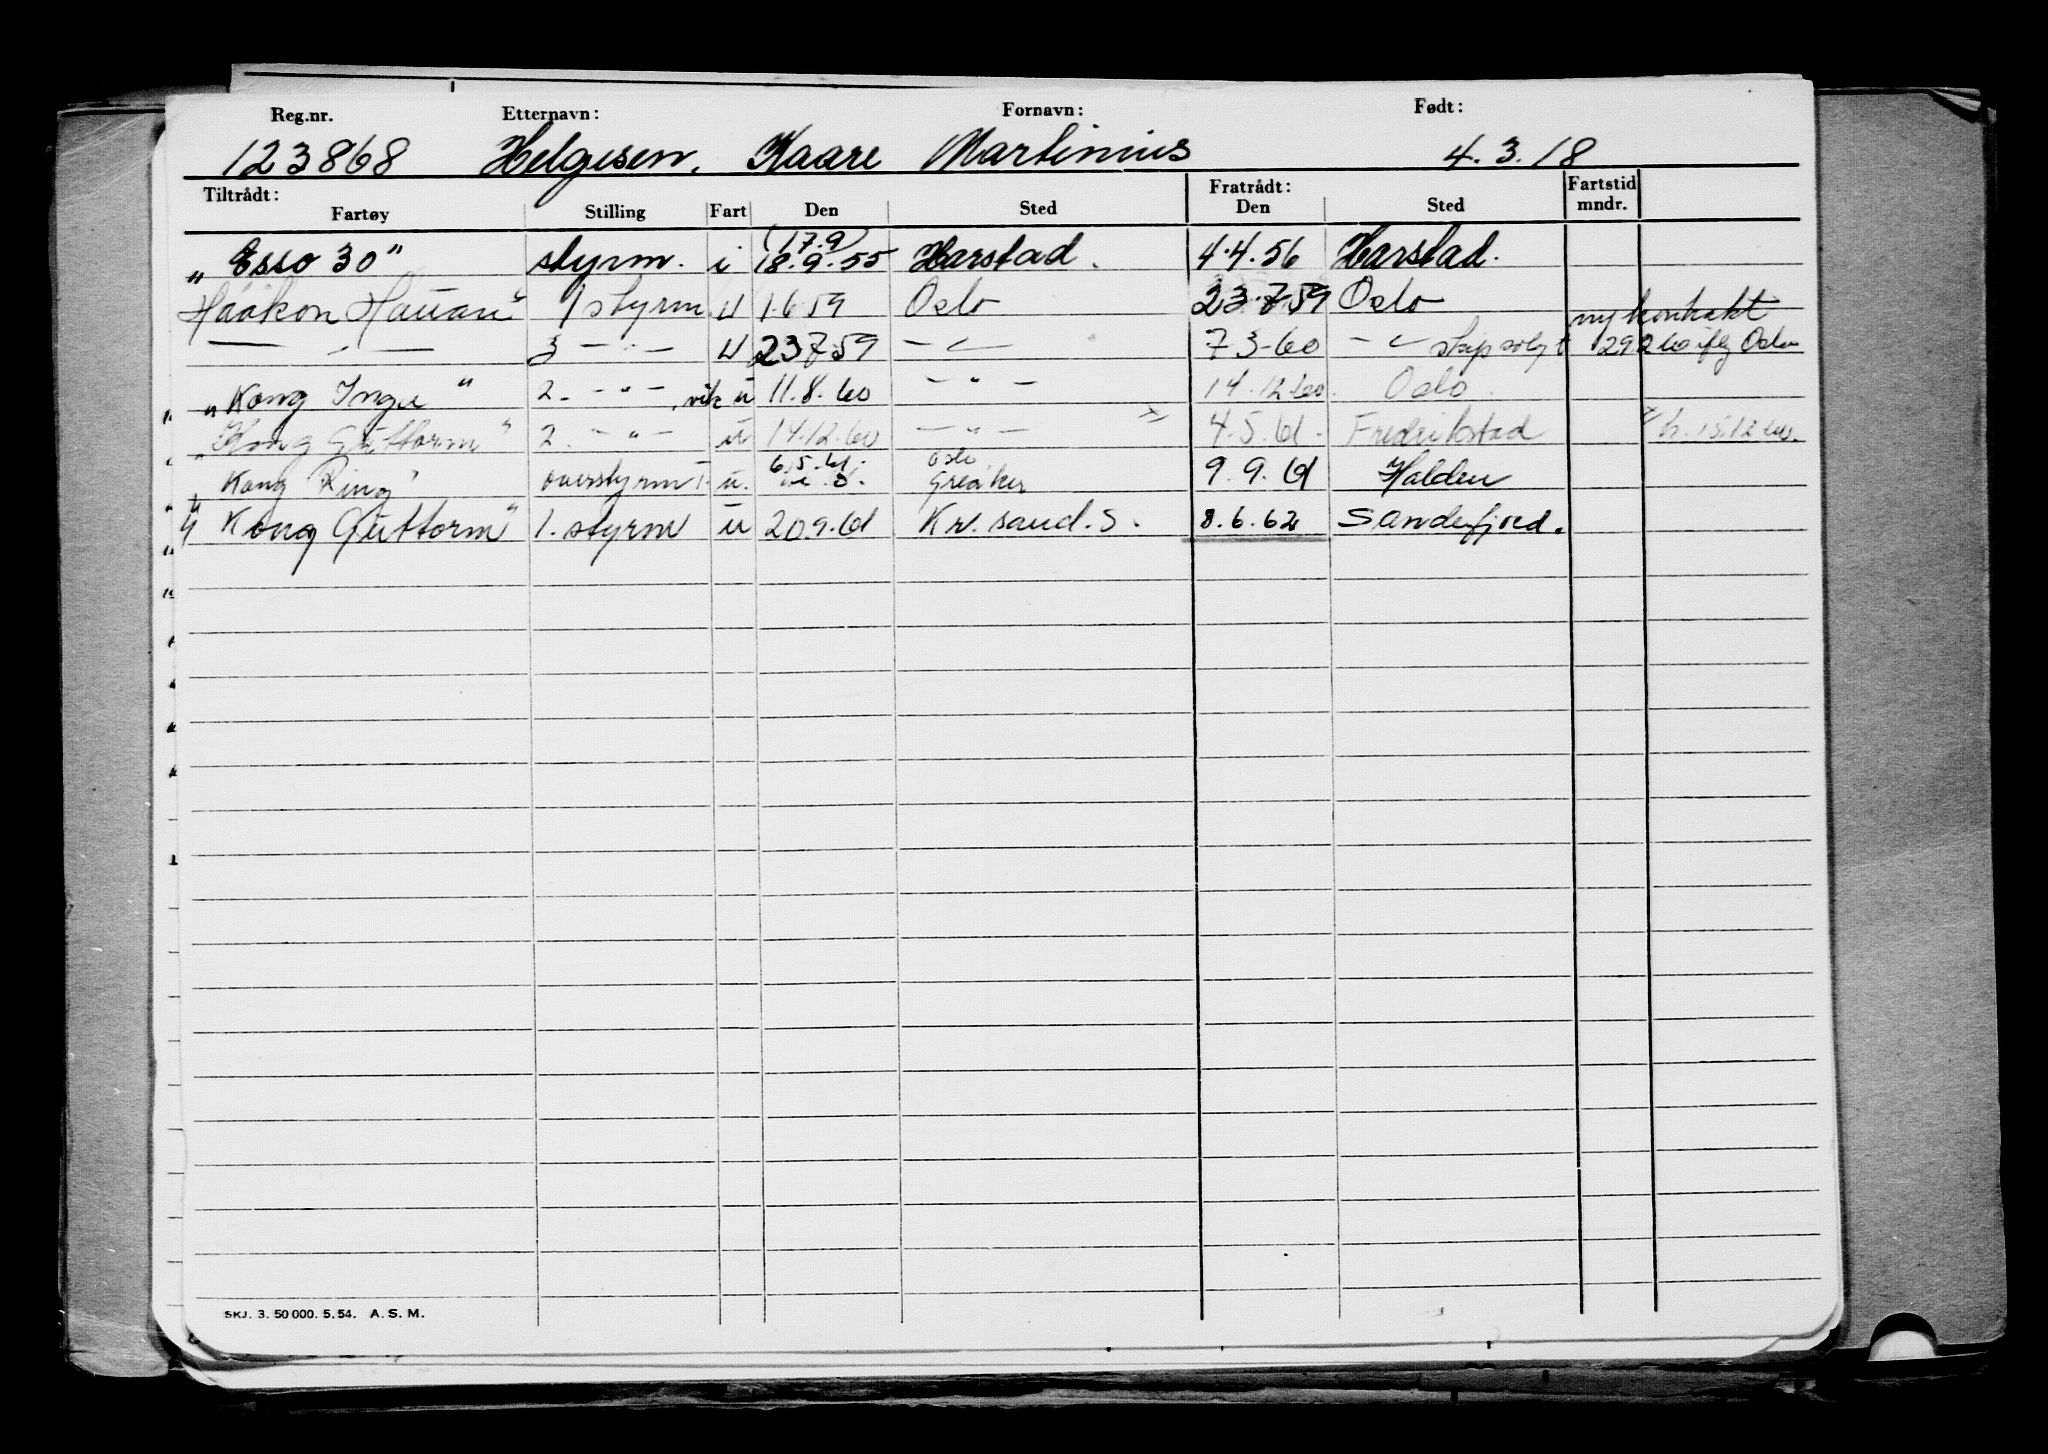 Reg.nr. Etternavn: Fornavn: Født:
123868 Helgesen, Kaare Martinius 4.3.18
Tiltrådt: Fratrådt: Fartstid
Fartøy Stilling Fart Den Sted Den Sted mndr.
(17.9)
„Esso 30" styrm. i 18.9.55 Harstad. 4.4.56 Harstad.
Haakon Hauan" 1 styrm U 1.6 59 Oslo 23.7.59 Oslo
ny kontrakt
— " — 3 — " — U 23 7 59 — " — 7 3-60 — " — skip solgt 29 2 60 iflg Oslo
„Kong Inge" 2. — " — , vik u 11.8.60 — " — 14.12.60. Oslo.
„Kong Guttorm" 2. — " — u 14.12.60 — " — x 4.5.61. Fredrikstad x h. 15.12.60.
6.5.61. Oslo
„Kong Ring" overstyrm u. Greåker 9.9.61 Halden
„Kong Guttorm" 1. styrm u 20.9.61 Kr. sand. S. 8.6.62 Sandefjord.
SKJ. 3. 50 000. 5. 54. A. S. M.